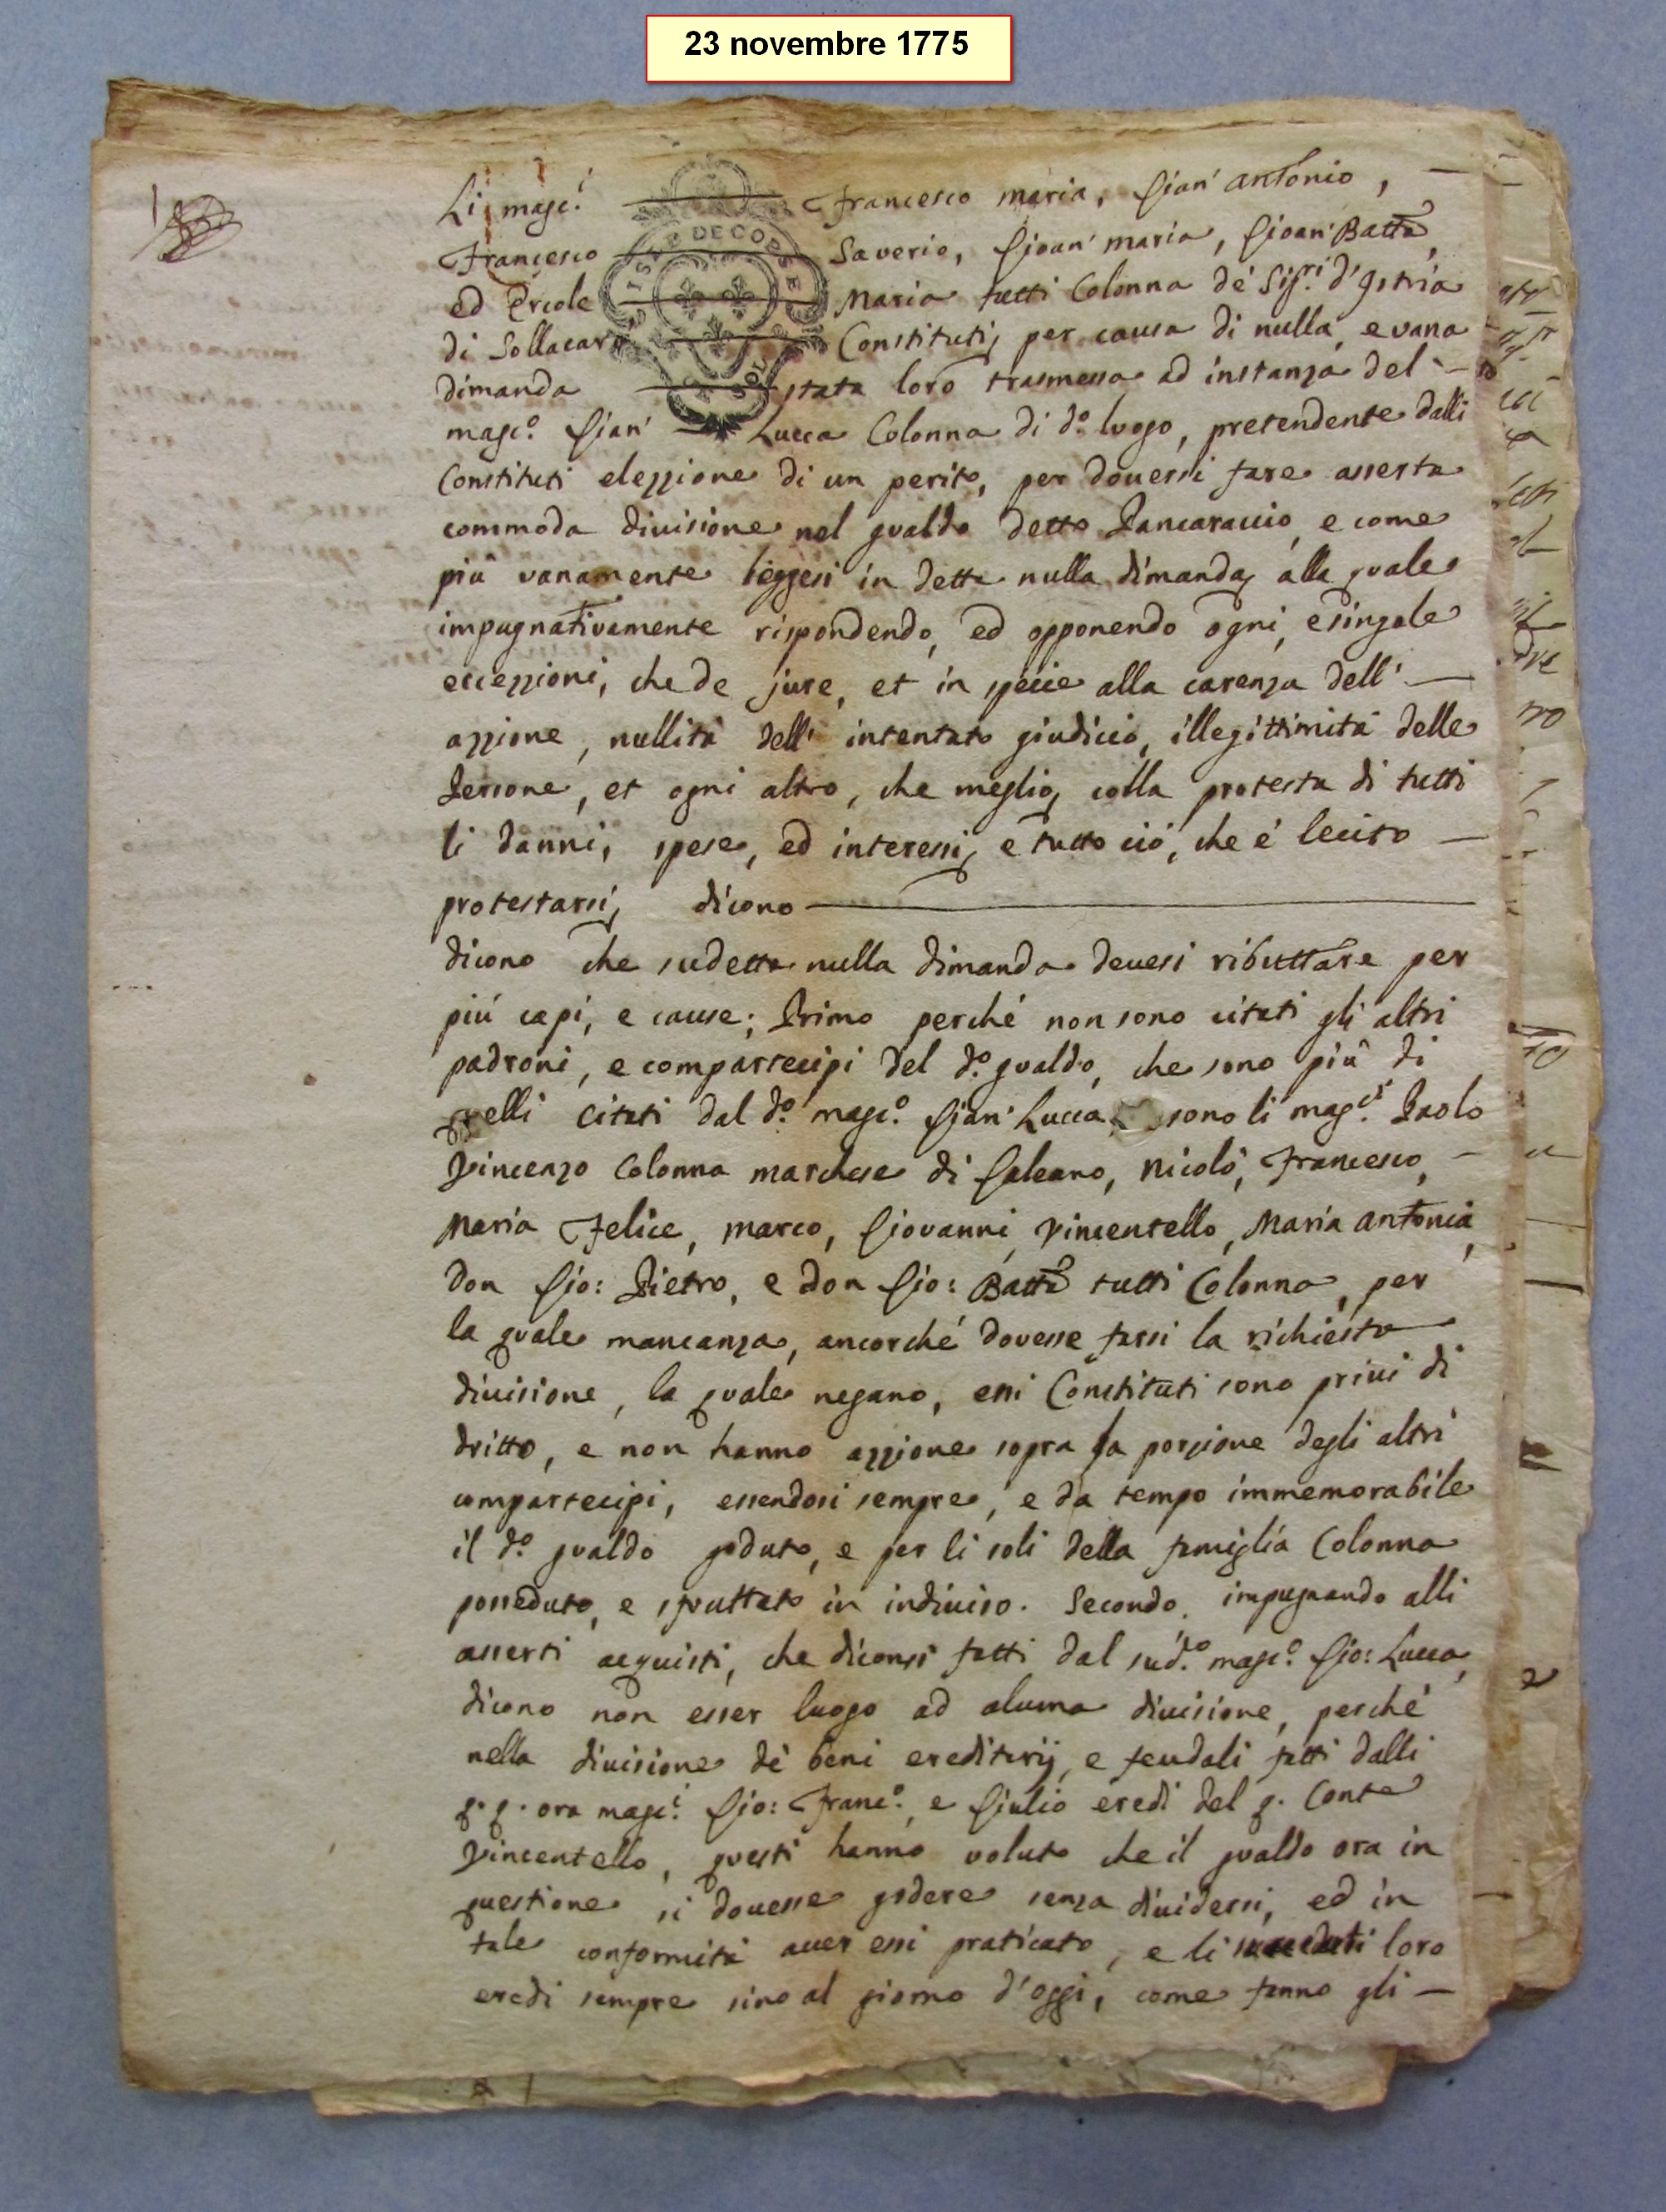 23 novembre 1775
Li magci. Francesco maria, Gian' antonio,
Francesco Saverio, Gioan' maria, Gioan' Batta,
ed Ercole Maria tutti Colonna de' Sigri. d'Istria
di Sollacaro Constituti, per causa di nulla, e vana
dimanda stata loro trasmessa ad instanza del
magco. Gian' Lucca Colonna di do. luogo, pretendente dalli
Constituti elezzione di un perito, per douersi fare asserta
commoda diuisione nel gualdo detto Pancaraccio, e come
più vanamente leggesi in detta nulla dimanda, alla quale
impugnativamente rispondendo, ed opponendo ogni, e singole
eccezzioni, che de jure, et in specie alla carenza dell'
azzione, nullità dell' intentato giudicio, illegittimità delle
Persone, et ogni altro, che meglio, colla protesta di tutti
li danni, spese, ed interessi, e tutto ciò, che é lecito
protestarsi, dicono
dicono che sudetta nulla dimanda deuesi ributtare per
più capi, e cause; Primo perché non sono citati gli altri
padroni, e compartecipi del do. gualdo, che sono più di
quelli citati dal do. magco. Gian' Lucca, sono li magci. Paolo
Vincenzo Colonna marchese di Galeano, Nicolò, Francesco,
Maria Felice, Marco, Giovanni, Vincentello, Maria Antonia,
Don Gio: Pietro, e Don Gio: Batta tutti Colonna, per
la quale mancanza, ancorché dovesse farsi la richiesta
diuisione, la quale negano, essi Constituti sono priui di
dritto, e non hanno azzione sopra la porzione degli altri
compartecipi, essendosi sempre, e da tempo immemorabile
il do. gualdo goduto, e per li soli della famiglia Colonna
posseduto, e sfruttato in indiuiso. Secondo, impugnando alli
asserti acquisti, che diconsi fatti dal sudo. magco. Gio: Lucca,
dicono non esser luogo ad alcuna diuisione, perché
nella diuisione de' beni ereditarij, e feudali fatti dalli
q. q. ora magci. Gio: Franco., e Giulio eredi del q. Conte
Vincentello, questi hanno voluto che il gualdo ora in
questione si douesse godere senza diuidersi, ed in
tale conformità auer essi praticato, e li loro
eredi sempre sino al giorno d'oggi, come fanno gli